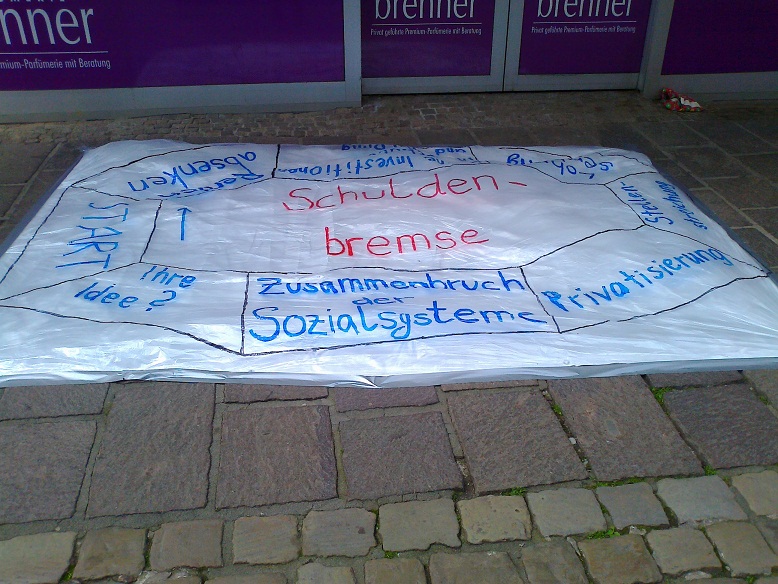 nner
mium-Parfümerie mit Beratung
brenner
Privat geführte Premium-Parfümerie mit Beratung
brenner
Privat geführte Premium-Parfümerie mit Beratung
Schulden-
bremse
START
absenken
Investitionen
Stellen-
Privatisierung
Zusammenbruch
der
Sozialsysteme
Ihre
Idee?